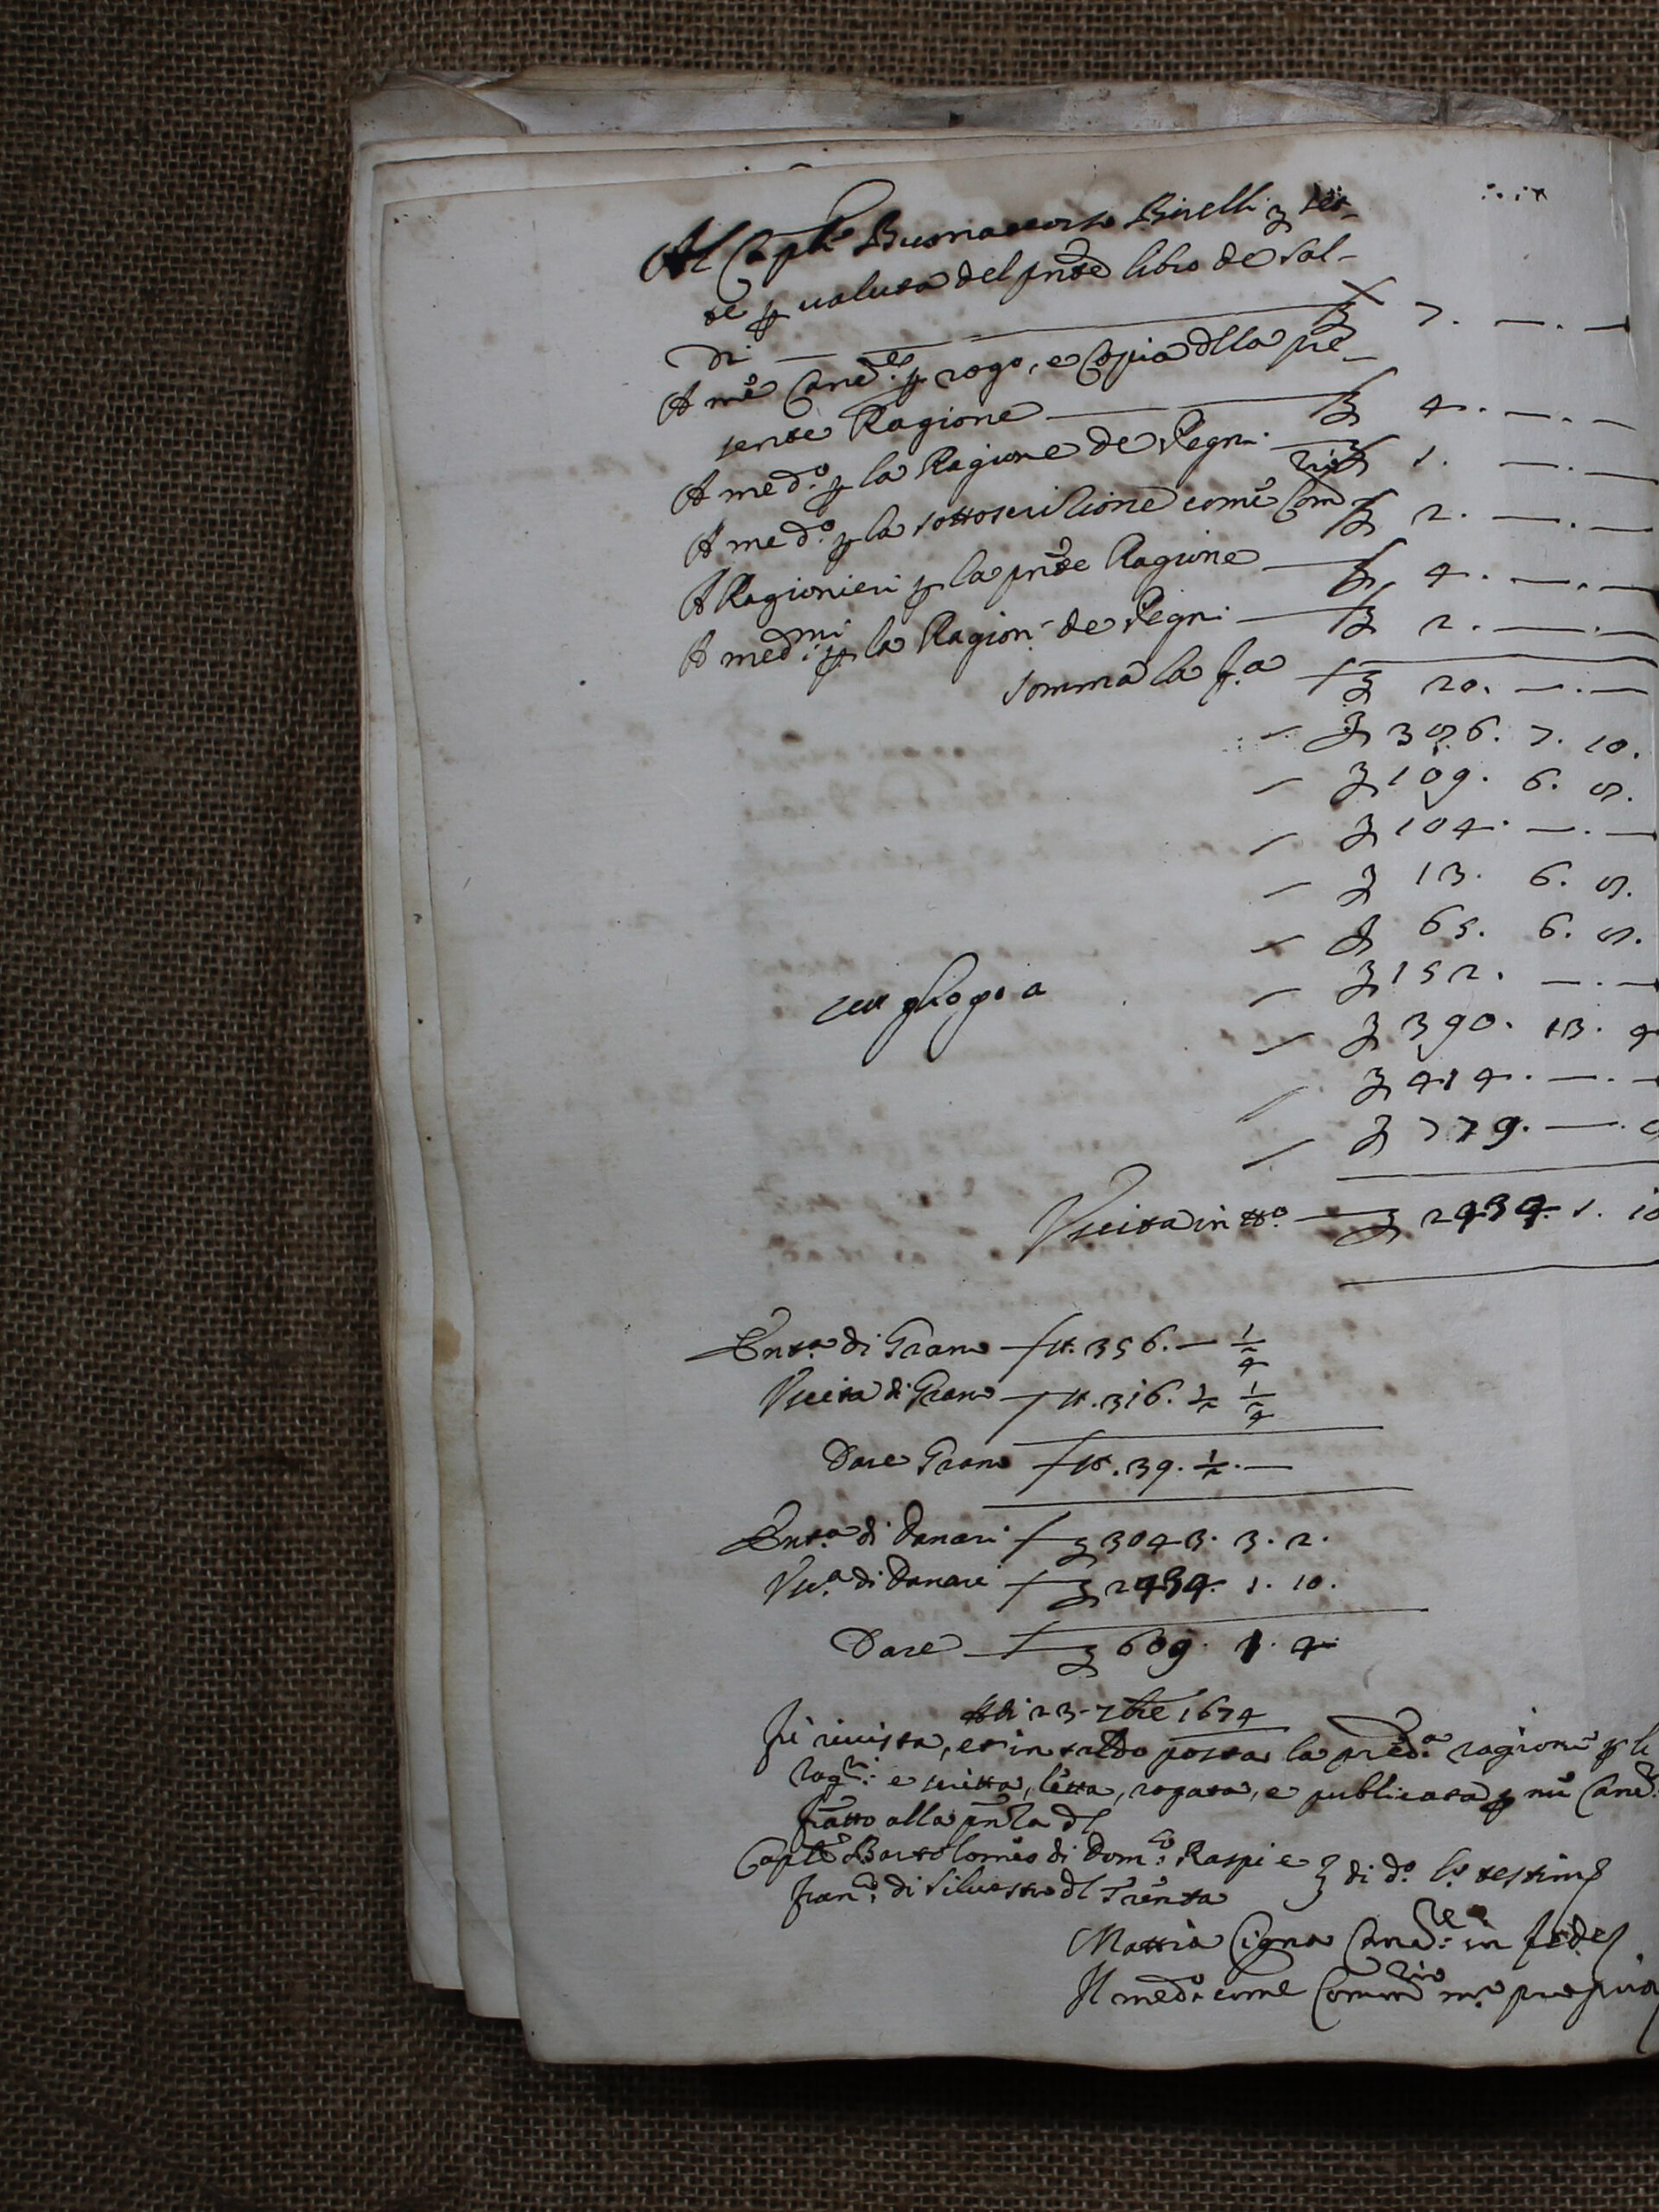 Al Cap.no Buonaccorso Birelli ₰ set-
te p ualuta del pnte libro de Sal-
di — ₰ 7. —. —
A me Canc.re p rogo, e Copia dlla pre-
sente Ragione — ₰ 4. —. —
A med.o p la Ragione de Pegni — ₰ 1. —. —
A med.o p la sottoscritione come Com.rio ₰ 2. —. —
A Ragionieri p la pnte Ragione — ₰ 4. —. —
A med.mi p la Ragion. de Pegni — ₰ 2. —. —
Somma la f.a — ₰ 20. —. —
— ₰ 386. 7. 10.
— ₰ 109. 6. 8.
— ₰ 104. —. —
— ₰ 13. 6. 8.
— ₰ 65. 6. 8.
— ₰ 152. —. —
— ₰ 390. 13. 4
— ₰ 414. —. —
— ₰ 779. —.
Vscita in tt.o — ₰ 2434. 1. 10
Entr.a di Grano — st. 356. — 1/4
Vscita di Grano — st. 316. 1/2 1/4
Dare Grano — st. 39. 1/2. —
Entr.a di Danari — ₰ 3043. 3. 2.
Vsc.a di Danari — ₰ 2434. 1. 10.
Dare — ₰ 609. 1. 4
Adi 23 7bre 1674
Fu riuista, et in saldo posta la pred.a ragione p li
rag.ri e scritta, letta, rogata, e publicata p me Canc.
fatto alla pnza dl
Cap.no Bartolomeo di Dom.co Raspi e
Fran.co di Siluestro dl Trenta } di d.o l.o testimⱥ
Mattia Cigna Canc.re in fede
Il med.o come Comm.rio m.o propria